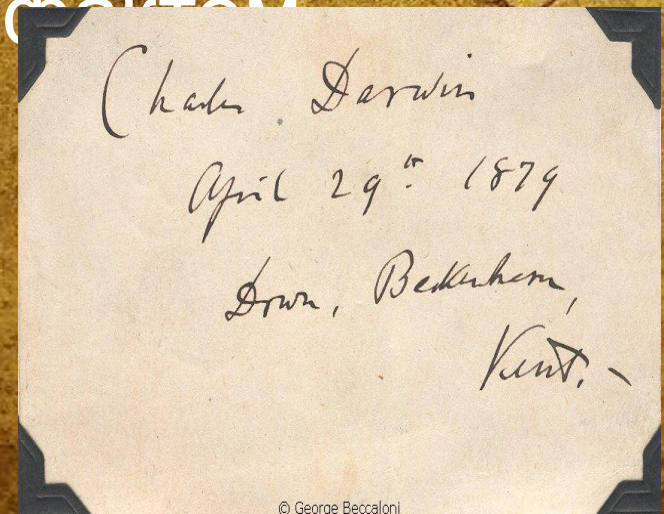 Charles Darwin
April 29th 1879
Down, Beckenham,
Kent. –
© George Beccaloni